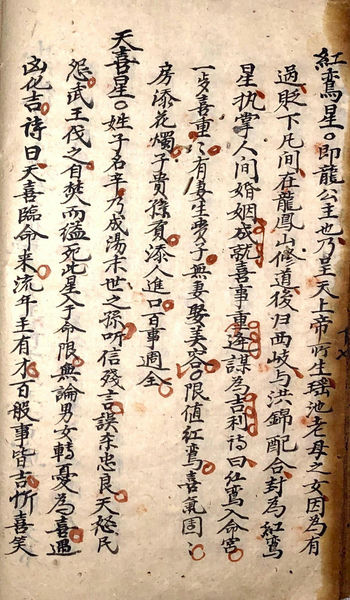 紅鸞星○即龍公主也乃昊天上帝所生瑤池老母之女因為有
過貶下凡间在龍鳳山修道後归西岐与洪錦配合封為紅鸞
星执掌人间婚姻成就喜事重逢謀為吉利诗曰红鸾入命宫
一步喜重〻有妻生贵子無妻娶美容限值红鸾喜氣固〻
房添花燭子貴孫賢添人進口百事週全
天喜星○姓子名辛乃成湯末世之孫听信殘言誤杀忠良天怒民
怨武王伐之自焚而縊死此星入于命限無論男女轉憂為喜遇
凶化吉诗曰天喜臨命来流年主有才百般事皆吉忻喜笑